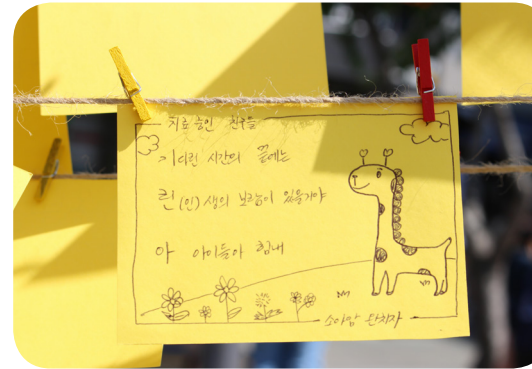 치료중인 친구들
기 다린 시간의 끝에는
린 (인) 생의 보람이 있을거야
아 아이들아 힘내
소아암 완치자